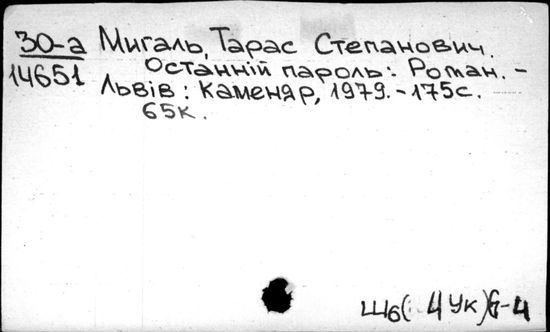 30-а Мигаль, Тарас Степанович.
14651 Останній пароль: Роман. -
Львів: Каменяр, 1979. - 175с.
65к.
Ш6(4Ук)6-4